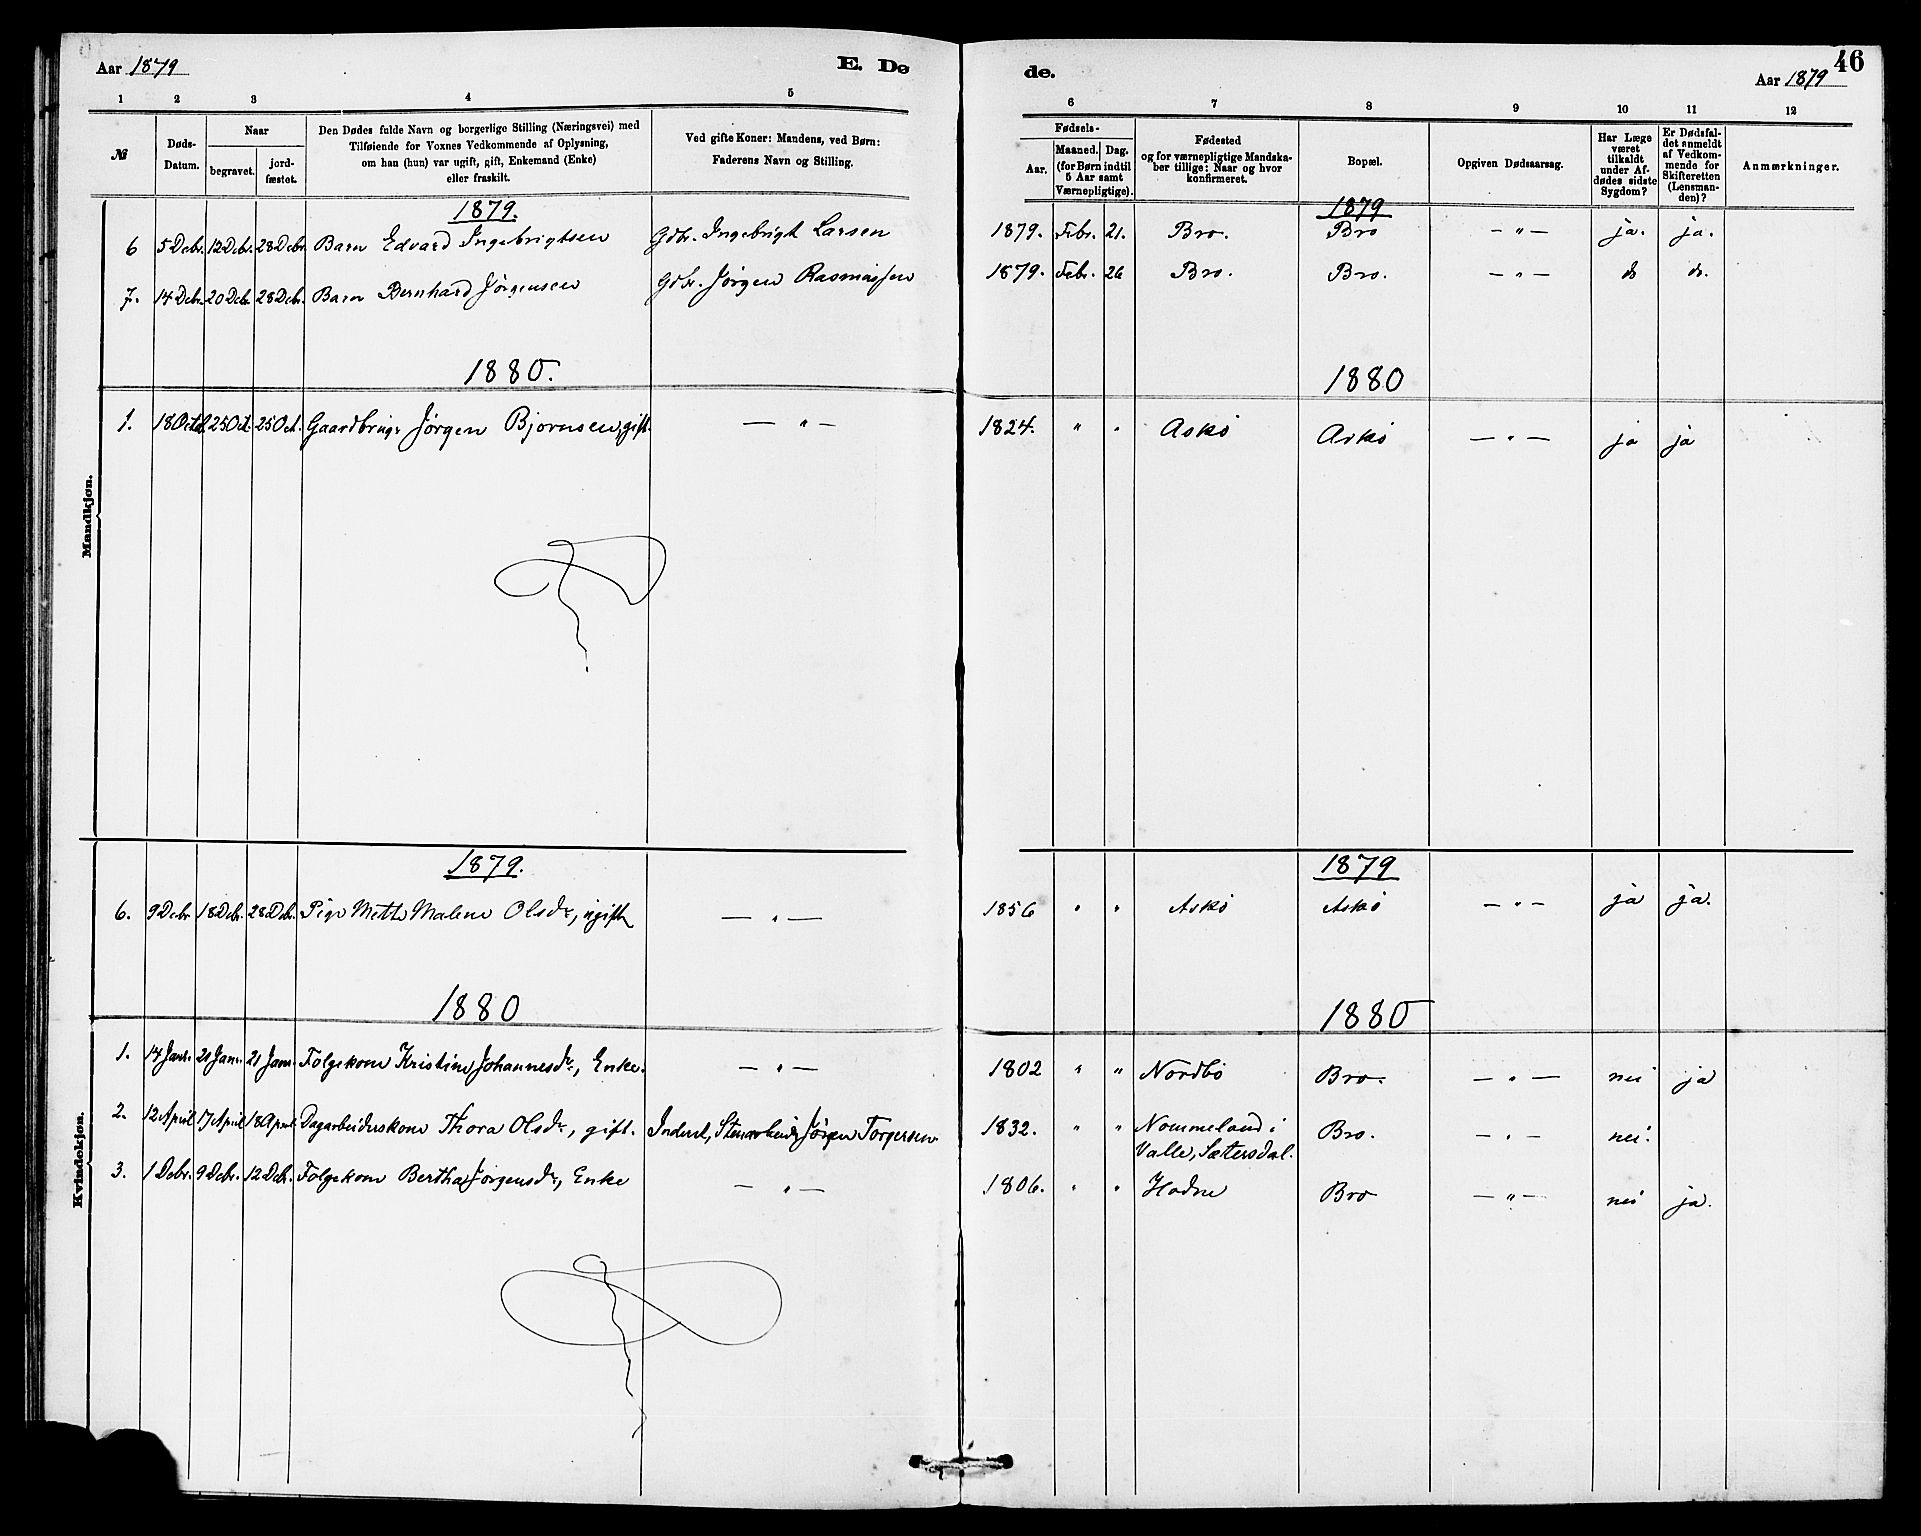 Aar 1879
E. Dø
de.
46
Aar 1879
1 2 3 4 5
6 7 8 9 10 11 12
№
Døds-
Datum.
Naar
begravet.
jord-
fæstet.
Den Dødes fulde Navn og borgerlige Stilling (Næringsvei) med
Tilføiende for Voxnes Vedkommende af Oplysning,
om han (hun) var ugift, gift, Enkemand (Enke)
eller fraskilt.
Ved gifte Koner: Mandens, ved Børn:
Faderens Navn og Stilling.
Fødsels-
Aar.
Maaned. Dag.
(for Børn indtil
5 Aar samt
Værnepligtige).
Fødested
og for værnepligtige Mandska-
ber tillige: Naar og hvor
konfirmeret.
Bopæl.
Opgiven Dødsaarsag.
Har Læge
været
tilkaldt
under Af-
dødes sidste
Sygdom?
Er Dødsfal-
det anmeldt
af Vedkom-
mende for
Skifteretten
(Lensman-
den)?
Anmærkninger.
Mandkjøn.
1879. 1879
6 5 Debr. 12 Debr. 28 Debr. Barn Edvard Ingebrigtsen Gdbr. Ingebrigt Larsen 1879. Febr. 21. Bro. Bro — " — ja. ja.
7. 14 Debr. 20 Debr. 28 Debr. Barn Bernhard Jørgensen Gdbr. Jørgen Rasmussen 1879. Febr. 26 Bro. Bro. — " — do do.
1880. 1880
1. 18 Octbr. 25 Oct. 25 Oct. Gaardbruger Jørgen Bjørnsen, gift. — " — 1824. " " Askø Askø — " — ja ja
Kvindekjøn.
1879. 1879
6. 9 Debr. 18 Debr. 28 Debr. Pige Mette Malene Olsdr, ugift — " — 1856 " " Askø Askø — " — ja ja.
1880 1880
1. 14 Janr. 21 Janr. 21 Janr. Følgekone Kristine Johannesdr, Enke. — " — 1802 " " Nordbø Bro. — " — nei ja
2. 12 April 17 April 18 April Dagarbeiderskone Thora Olsdr, gift. Inderst, Stenarbeider Jørgen Torgersen 1832. " " Nommeland i Bro. — " — nei.
Valle, Sætersdal.
3. 1 Debr. 9 Debr. 12 Debr. Følgekone Bertha Jørgensdr, Enke — " — 1806. " " Hodne Bro — " — nei ja.